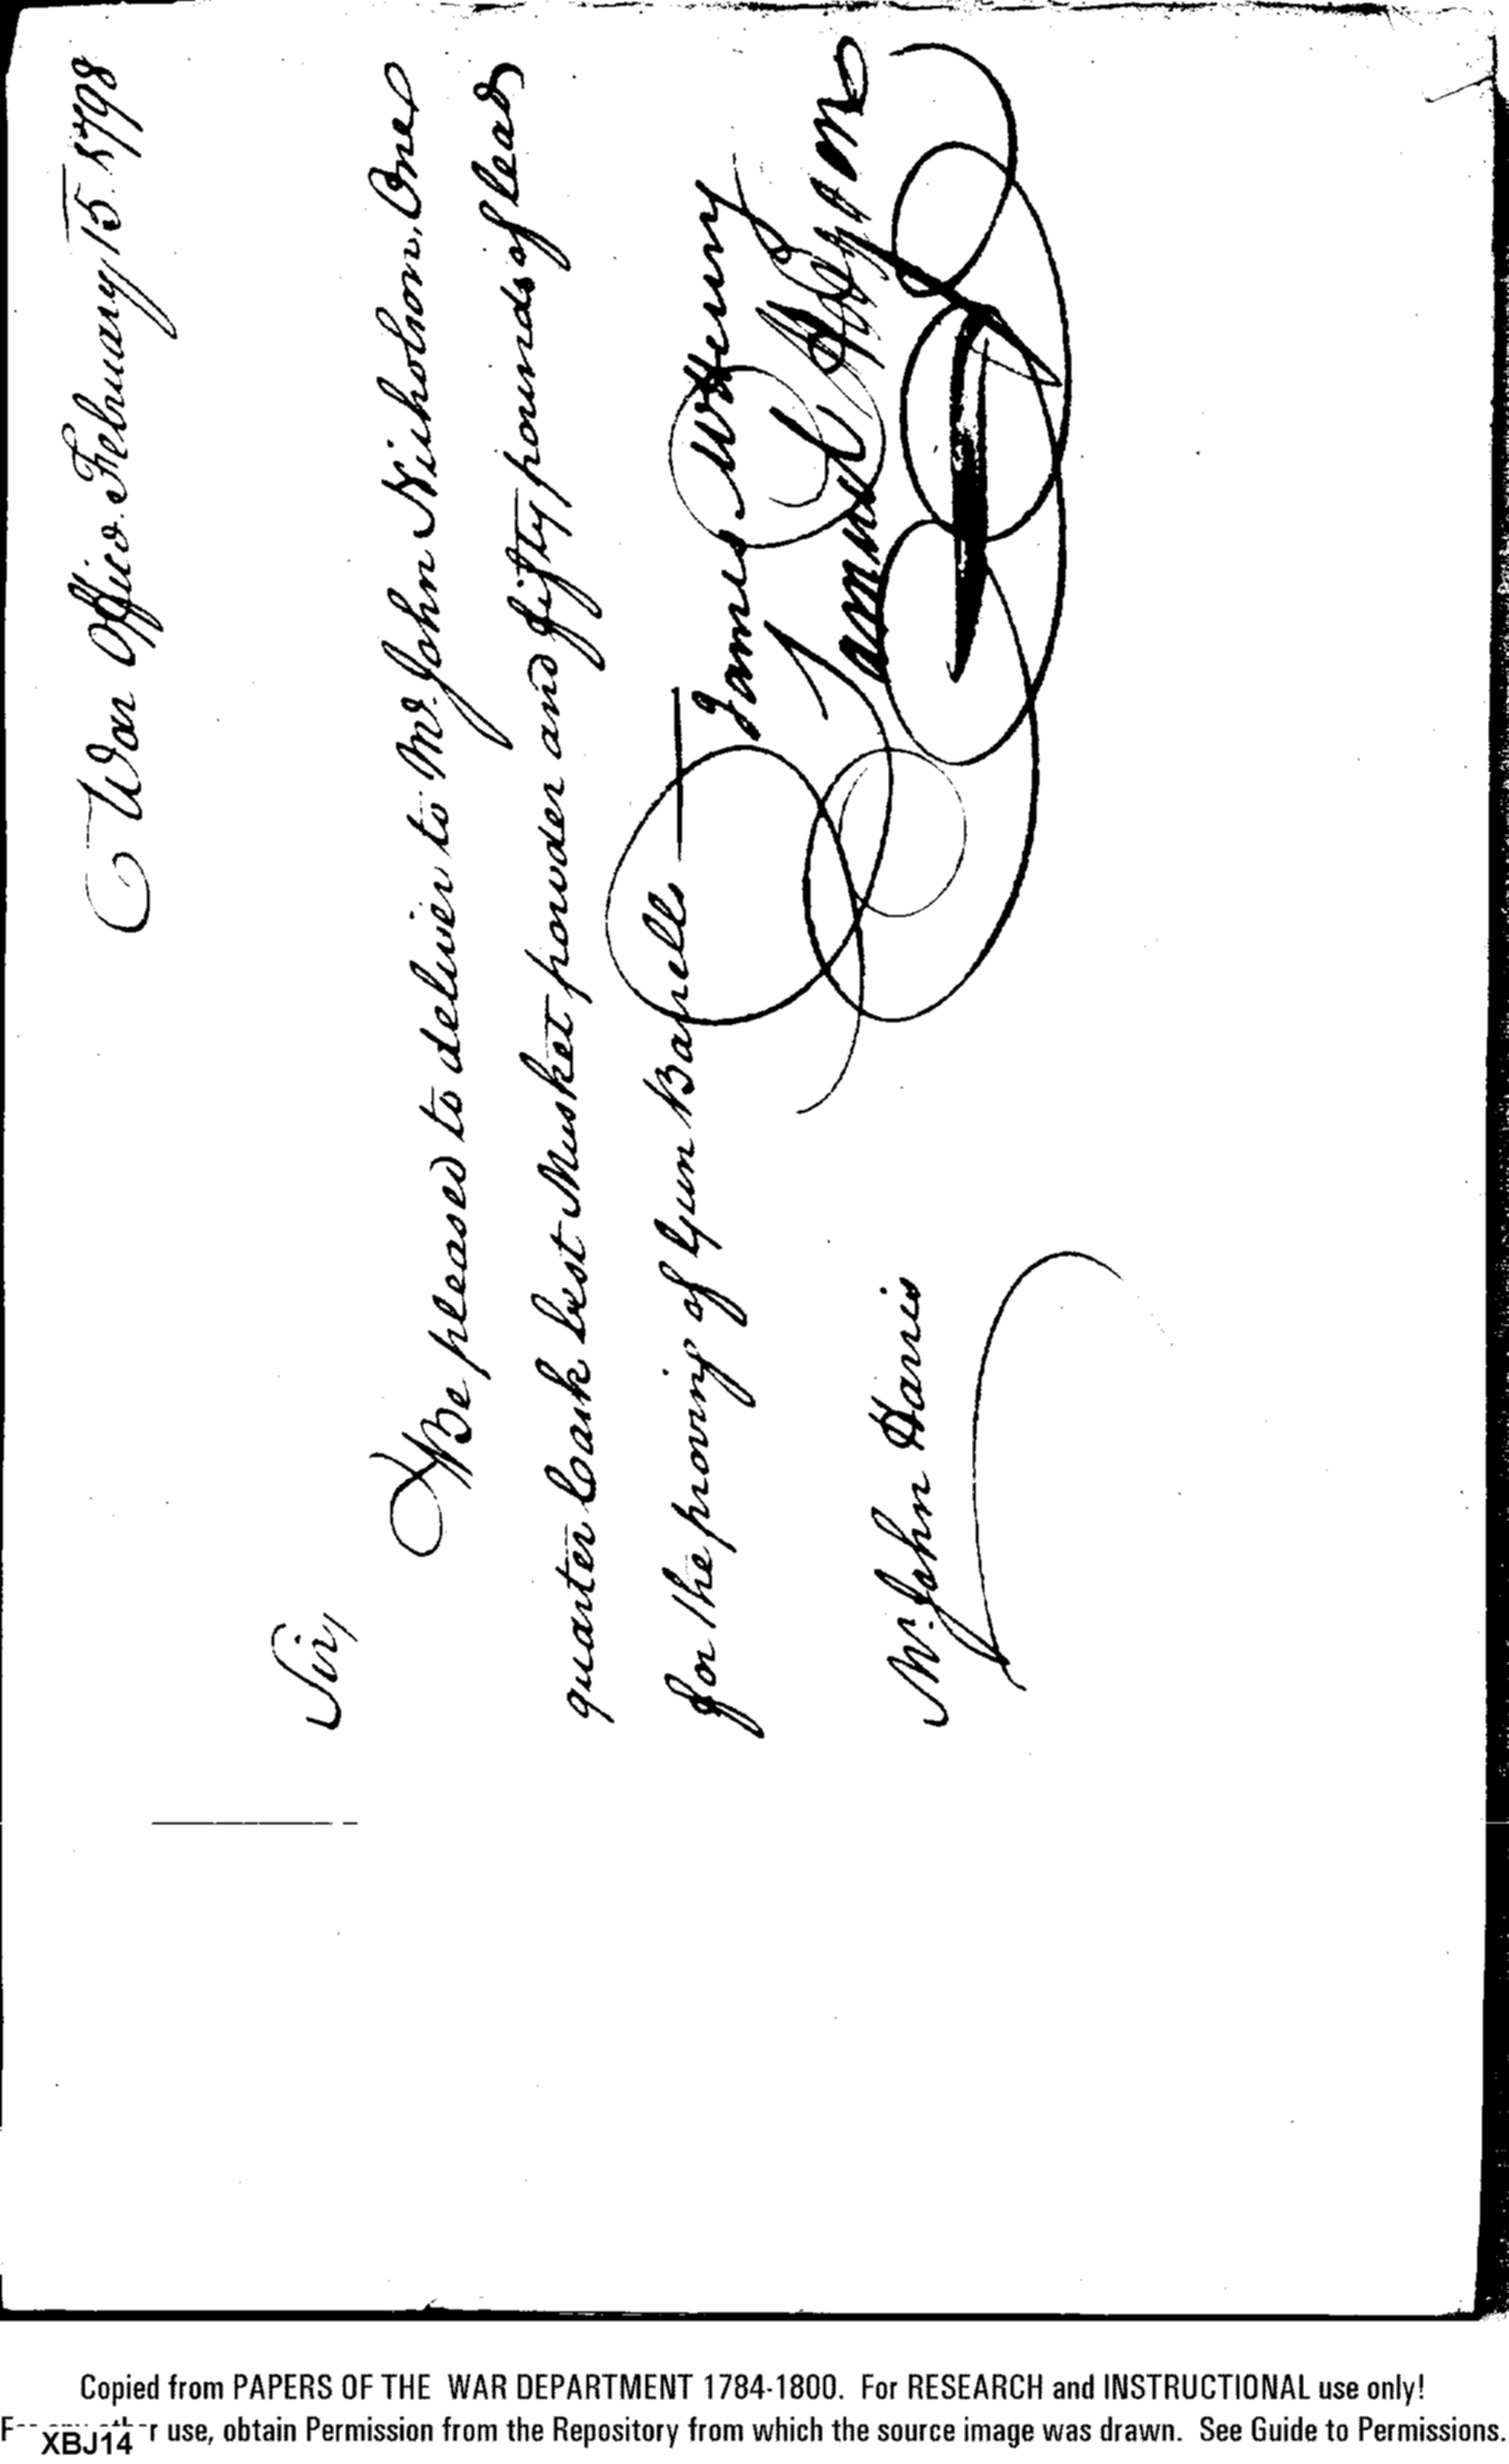 War Office February 15. 1798
Sir,
Be pleased to deliver to Mr. John Nicholson, One
quarter Cask best Musket powder and fifty pounds of lead
for the proving of Gun Barells —
James McHenry
Samuel Hodgdon
Mr. John Harris
Copied from PAPERS OF THE WAR DEPARTMENT 1784-1800. For RESEARCH and INSTRUCTIONAL use only!
use, obtain Permission from the Repository from which the source image was drawn. See Guide to Permissions.
XBJ14